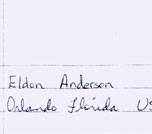 Eldon Anderson
Orlando Florida US